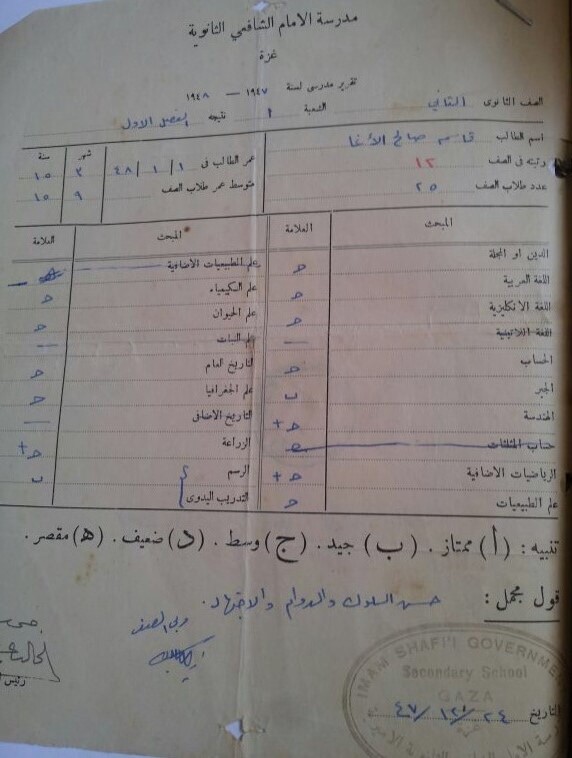 مدرسة الامام الشافعي الثانوية
غزة
تقرير مدرسى لسنة ١٩٤٧ — ١٩٤٨
الصف الثانوى الثاني الشعبة ٩ نتيجه الفصل الاول
اسم الطالب قاسم صالح الأغا
رتبته فى الصف ١٢
عدد طلاب الصف ٢٥
شهر سنة
عمر الطالب فى ١ / ١ / ٤٨ ٣ ١٥
متوسط عمر طلاب الصف ٩ ١٥
المبحث العلامة
الدين او المجلة ح
اللغة العربية ح
اللغة الانكليزية ح
اللغة اللاتينية —
الحساب ح
الجبر ب
الهندسة ح+
حساب المثلثات
الرياضيات الاضافية ح+
علم الطبيعيات ح
المبحث العلامة
علم الطبيعيات الاضافية —
علم الكيمياء ح
علم الحيوان ح
علم النبات —
التاريخ العام ح
علم الجغرافيا ح
التاريخ الاضافى —
الزراعة ح+
الرسم ب
التدريب اليدوى
تنبيه : (أ) ممتاز . (ب) جيد . (ج) وسط . (د) ضعيف . (ه) مقصر .
قول مجمل : حسن السلوك والدوام والاجتهاد.
مربي الصف
IMAM SHAFI'I GOVERNMENT
Secondary School
GAZA
التاريخ ٢٤/١٢/٤٧